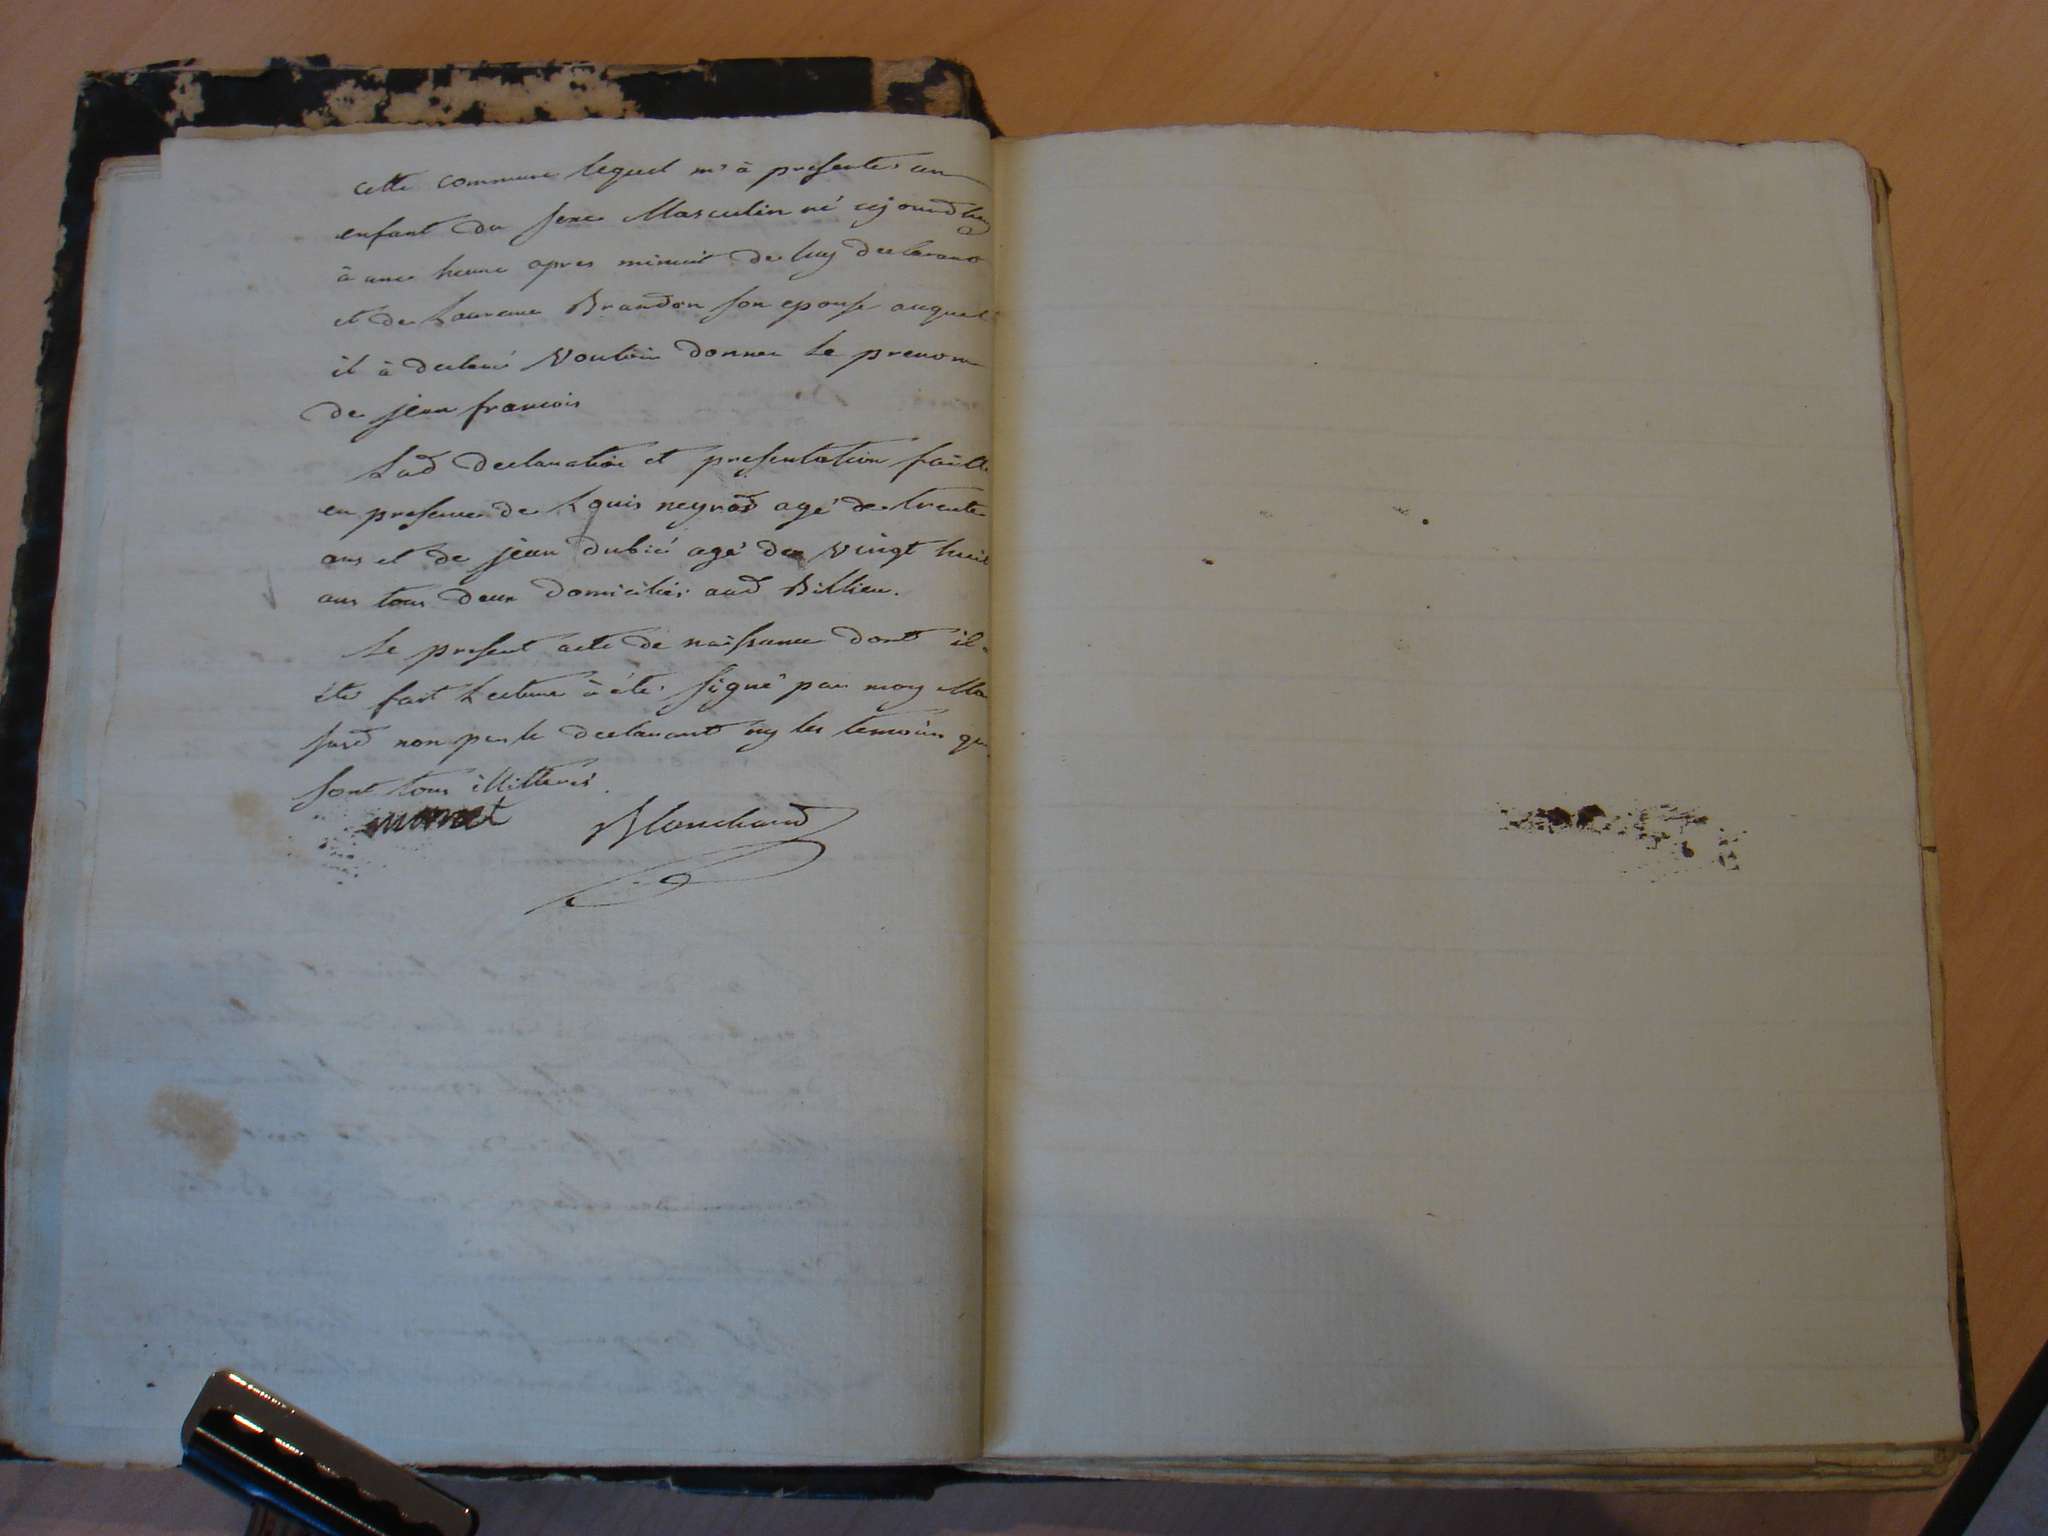 cette commune lequel m'à presenté un
enfant du sexe Masculin né cejourdhuy
à une heure apres minuit de luy declarant
et de Laurence Brandon son epouse auquel
il à declaré Vouloir donner le prenom
de jean francois
Lad declaration et presentation faitte
en presence de Louis neyrod agé de trente
ans et de jean dubié agé de vingt huit
ans tous deux domiciliés aud Billieu.
Le present acte de naissance dont il a
été fait Lecture à été signé par moy Ma
susd non par le declarant ny les temoins qui
sont tous illitterés.
Blanchard